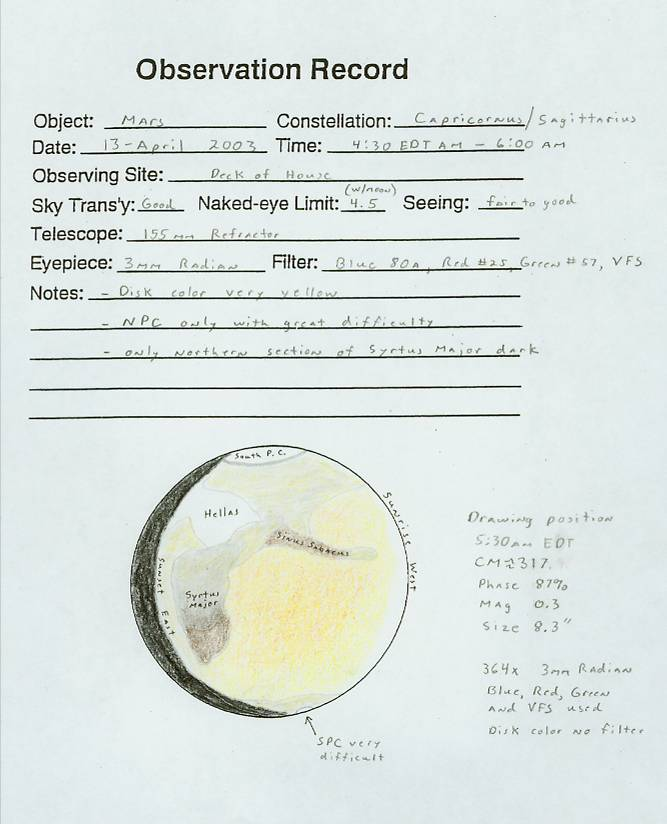 Observation Record
Object: Mars Constellation: Capricornus/Sagittarius
Date: 13-April 2003 Time: 4:30 EDT AM - 6:00 AM
Observing Site: Deck of House
(w/moon)
Sky Trans'y: Good Naked-eye Limit: 4.5 Seeing: fair to good
Telescope: 155mm Refractor
Eyepiece: 3mm Radian Filter: Blue 80A, Red #25, Green #57, VFS
Notes: - Disk color very yellow
- NPC only with great difficulty
- only northern section of Syrtus Major dark
South P.C.
Hellas
Sinus Sabaeus
Syrtus
Major
Sunset East
Sunrise West
SPC very
difficult
Drawing position
5:30am EDT
CM≈317.
Phase 87%
Mag 0.3
Size 8.3"
364x 3mm Radian
Blue, Red, Green
and VFS used
Disk color no filter